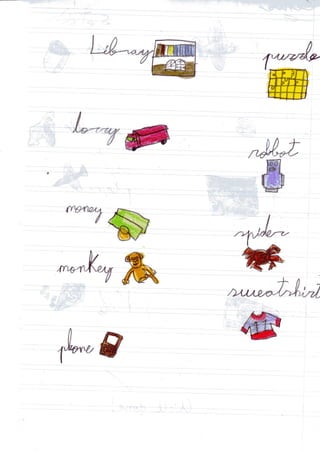 Libray
puzzle
lorry
robot
money
spider
monkey
sweatshirt
phone